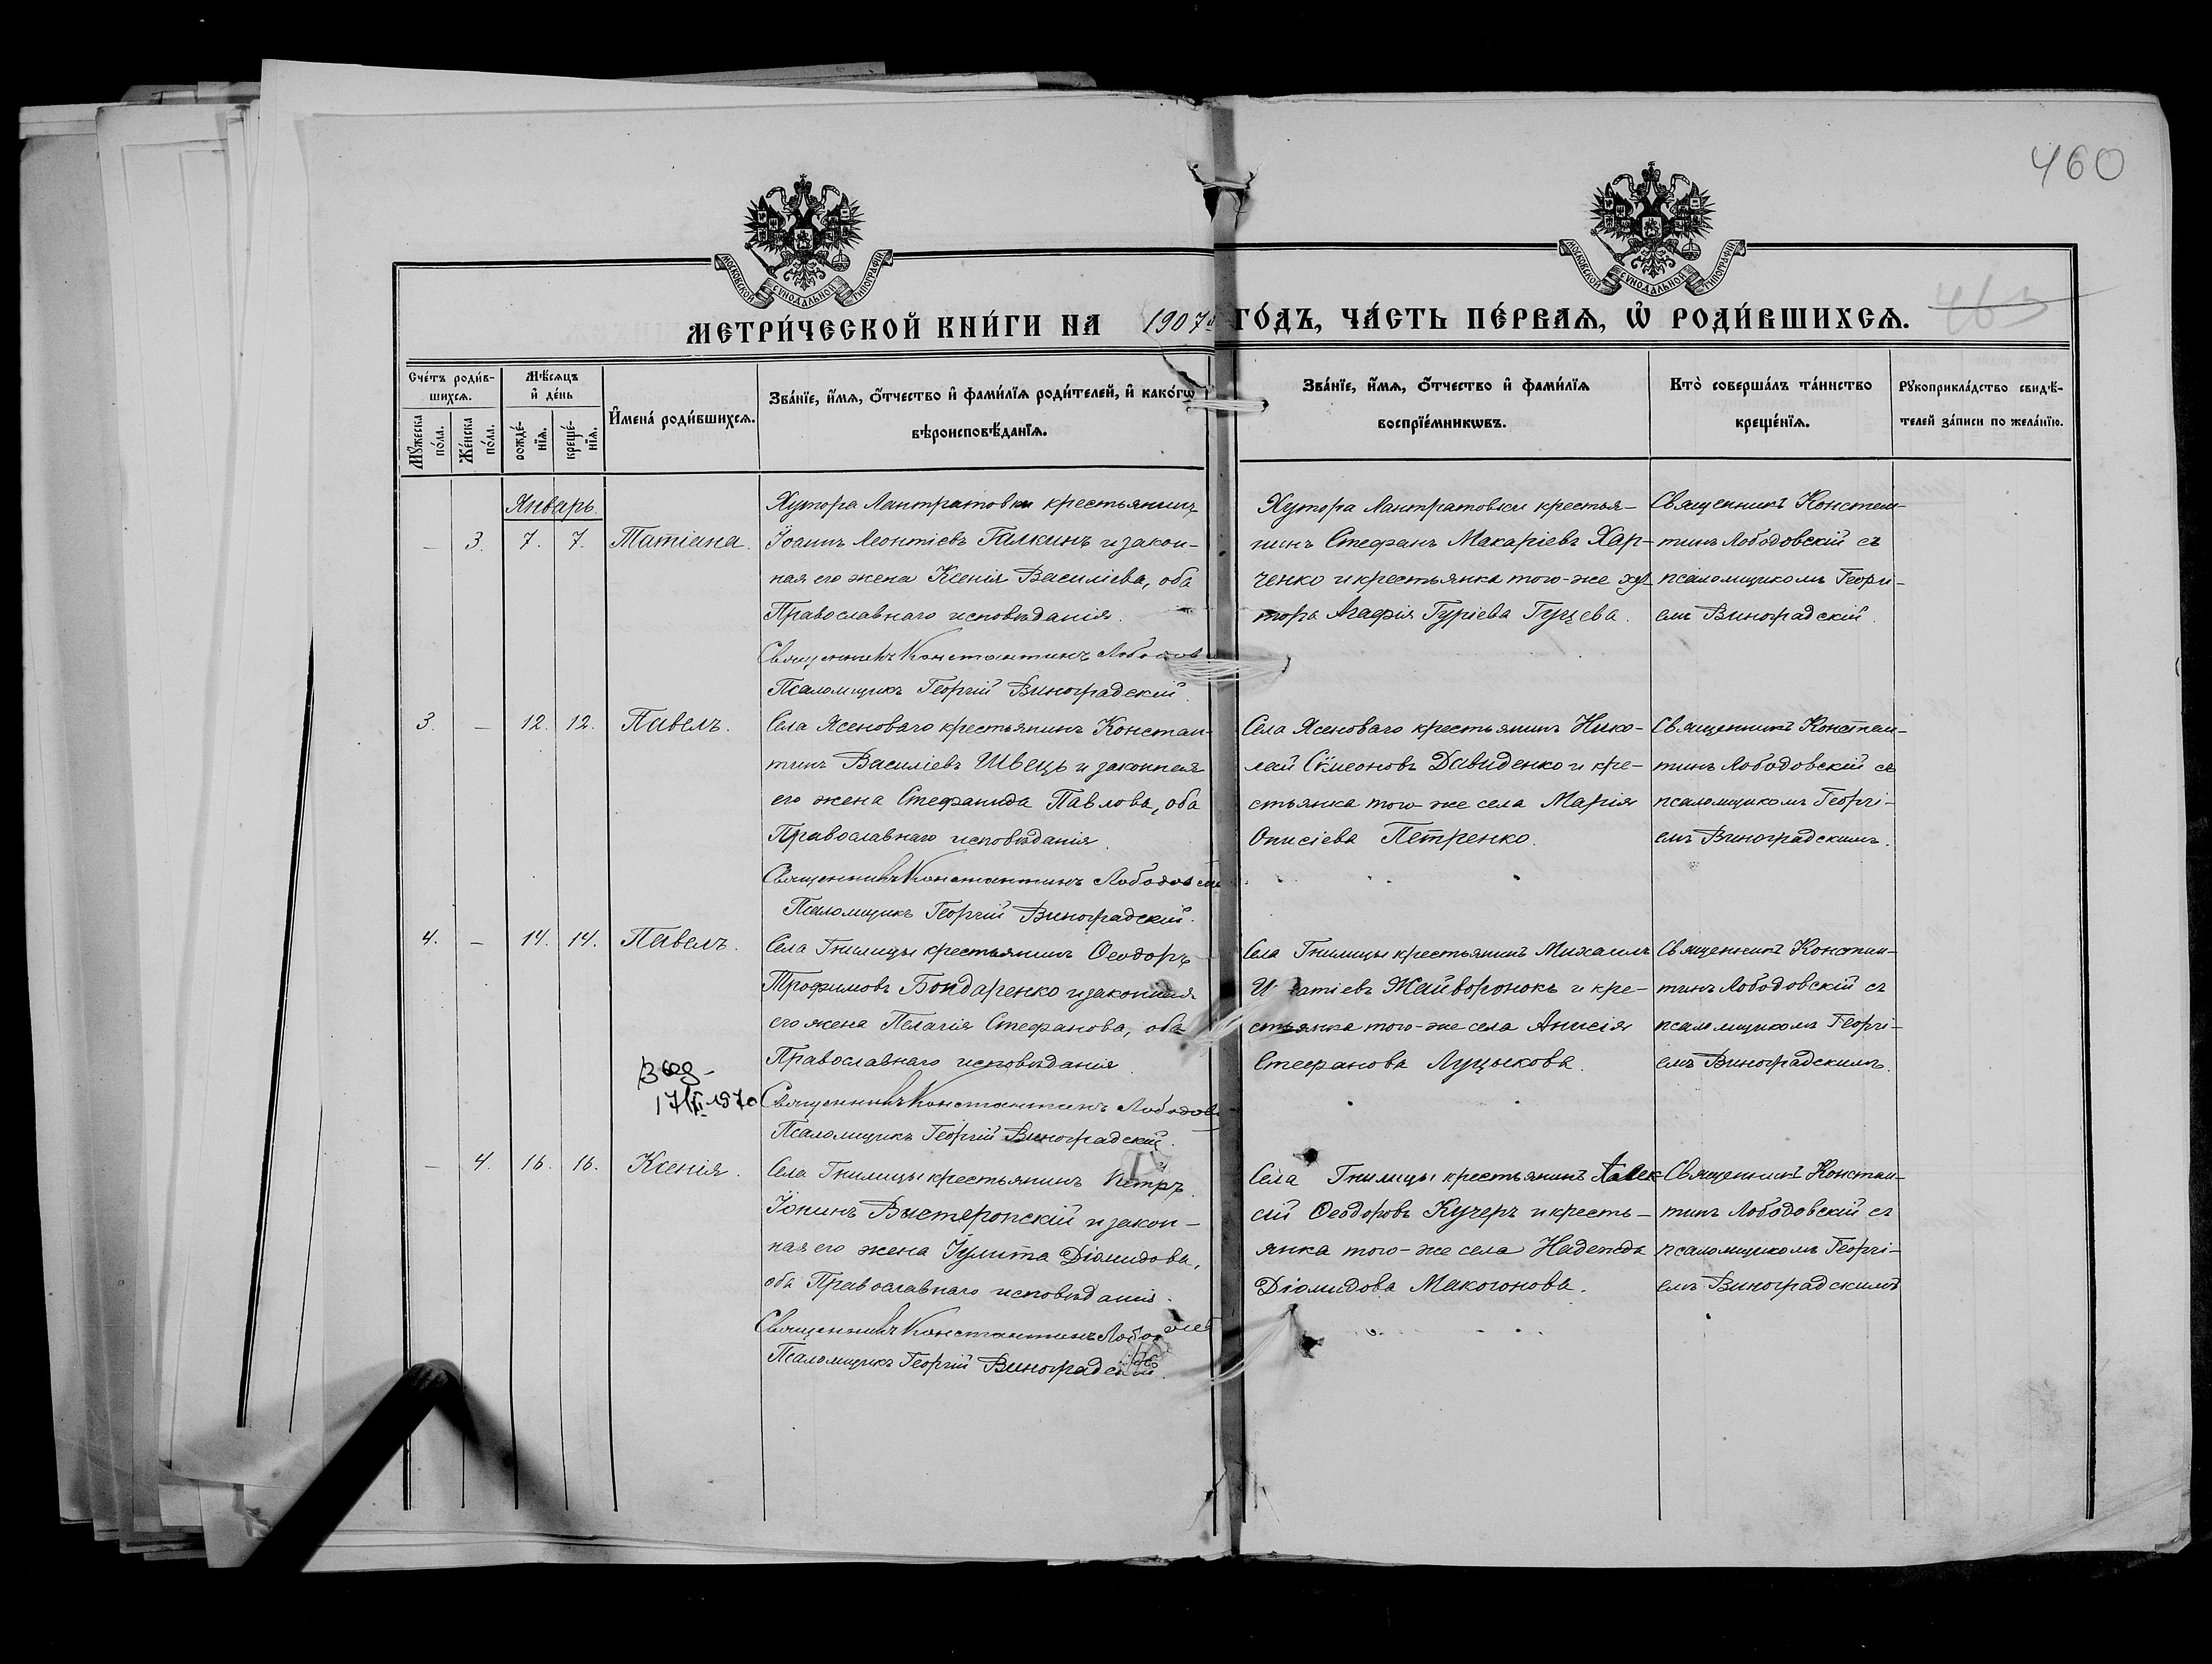 460
МОСКОВСКОЙ СѴНОДАЛЬНОЙ ТИПОГРАФІИ
МОСКОВСКОЙ СѴНОДАЛЬНОЙ ТИПОГРАФІИ
МЕТРИ́ЧЕСКОЙ КНИ́ГИ НА 1907й ГО́ДЪ, ЧА́СТЬ ПЕ́РВАѦ, Ѡ҆ РОДИ́ВШИХСѦ.
Сче́тъ роди́в-
шихсѧ.
Мꙋ́жеска по́ла.
Же́нска по́ла.
Мѣ́сѧцъ
и҆ де́нь
рожде́-
нїѧ.
креще́-
нїѧ.
И҆мена̀ роди́вшихсѧ.
Зва́нїе, и҆́мѧ, ѻ҆́тчество и҆ фами́лїѧ роди́телей, и҆ како́гѡ
вѣроисповѣ́данїѧ.
Зва́нїе, и҆́мѧ, ѻ҆́тчество и҆ фами́лїѧ
воспрїе́мникѡвъ.
Кто̀ соверша́лъ та́инство
креще́нїѧ.
Рꙋкоприкла́дство свидѣ́-
телей за́писи по жела́нїю.
Январь
— 3. 7. 7. Татіана.
Хутора Лантратовки крестьянинъ
Іоаннъ Леонтіевъ Галкинъ и закон-
ная его жена Ксенія Василіева, оба
Православнаго исповѣданія.
Священникъ Константинъ Лободов
Псаломщикъ Георгій Виноградскій
Хутора Лантратовки крестья-
нинъ Стефанъ Макаріевъ Хар-
ченко и крестьянка того-же ху-
тора Агафія Гуріева Гуцева.
Священникъ Констан-
тинъ Лободовскій съ
псаломщикомъ Георги-
емъ Виноградскій.
3. — 12. 12. Павелъ.
Села Ясеноваго крестьянинъ Констан-
тинъ Василіевъ Швець и законная
его жена Стефанида Павлова, оба
Православнаго исповѣданія.
Священникъ Константинъ Лободовскі
Псаломщикъ Георгій Виноградскій.
Села Ясеноваго крестьянинъ Нико-
лай Сѵмеоновъ Давиденко и кре-
стьянка того-же села Марія
Онисіева Петренко.
Священникъ Констан-
тинъ Лободовскій съ
псаломщикомъ Георгі-
емъ Виноградскимъ.
4. — 14. 14. Павелъ.
Села Гнилицы крестьянинъ Ѳеодоръ
Трофимовъ Бондаренко и законная
его жена Пелагія Стефанова, оба
Православнаго исповѣданія.
17/XI 1970
Священникъ Константинъ Лободов
Псаломщикъ Георгій Виноградскій.
Села Гнилицы крестьянинъ Михаилъ
И атіевъ Жайворонокъ и кре-
стьянка того-же села Анисія
Стефанова Луцыкова.
Священникъ Констан-
тинъ Лободовскій съ
псаломщикомъ Георгі-
емъ Виноградскимъ.
— 4. 16. 16. Ксенія.
Села Гнилицы крестьянинъ Петръ
Іонинъ Выстеропскій и закон-
ная его жена Іулита Діомидова,
оба Православнаго исповѣданія.
Священникъ Константинъ Лободовскі
Псаломщикъ Георгій Виноградскій.
Села Гнилицы крестьянинъ Алек-
сій Ѳеодоровъ Кучеръ и кресть-
янка того-же села Надежда
Діомидова Макогонова.
Священникъ Констан-
тинъ Лободовскій съ
псаломщикомъ Георгі-
емъ Виноградскимъ